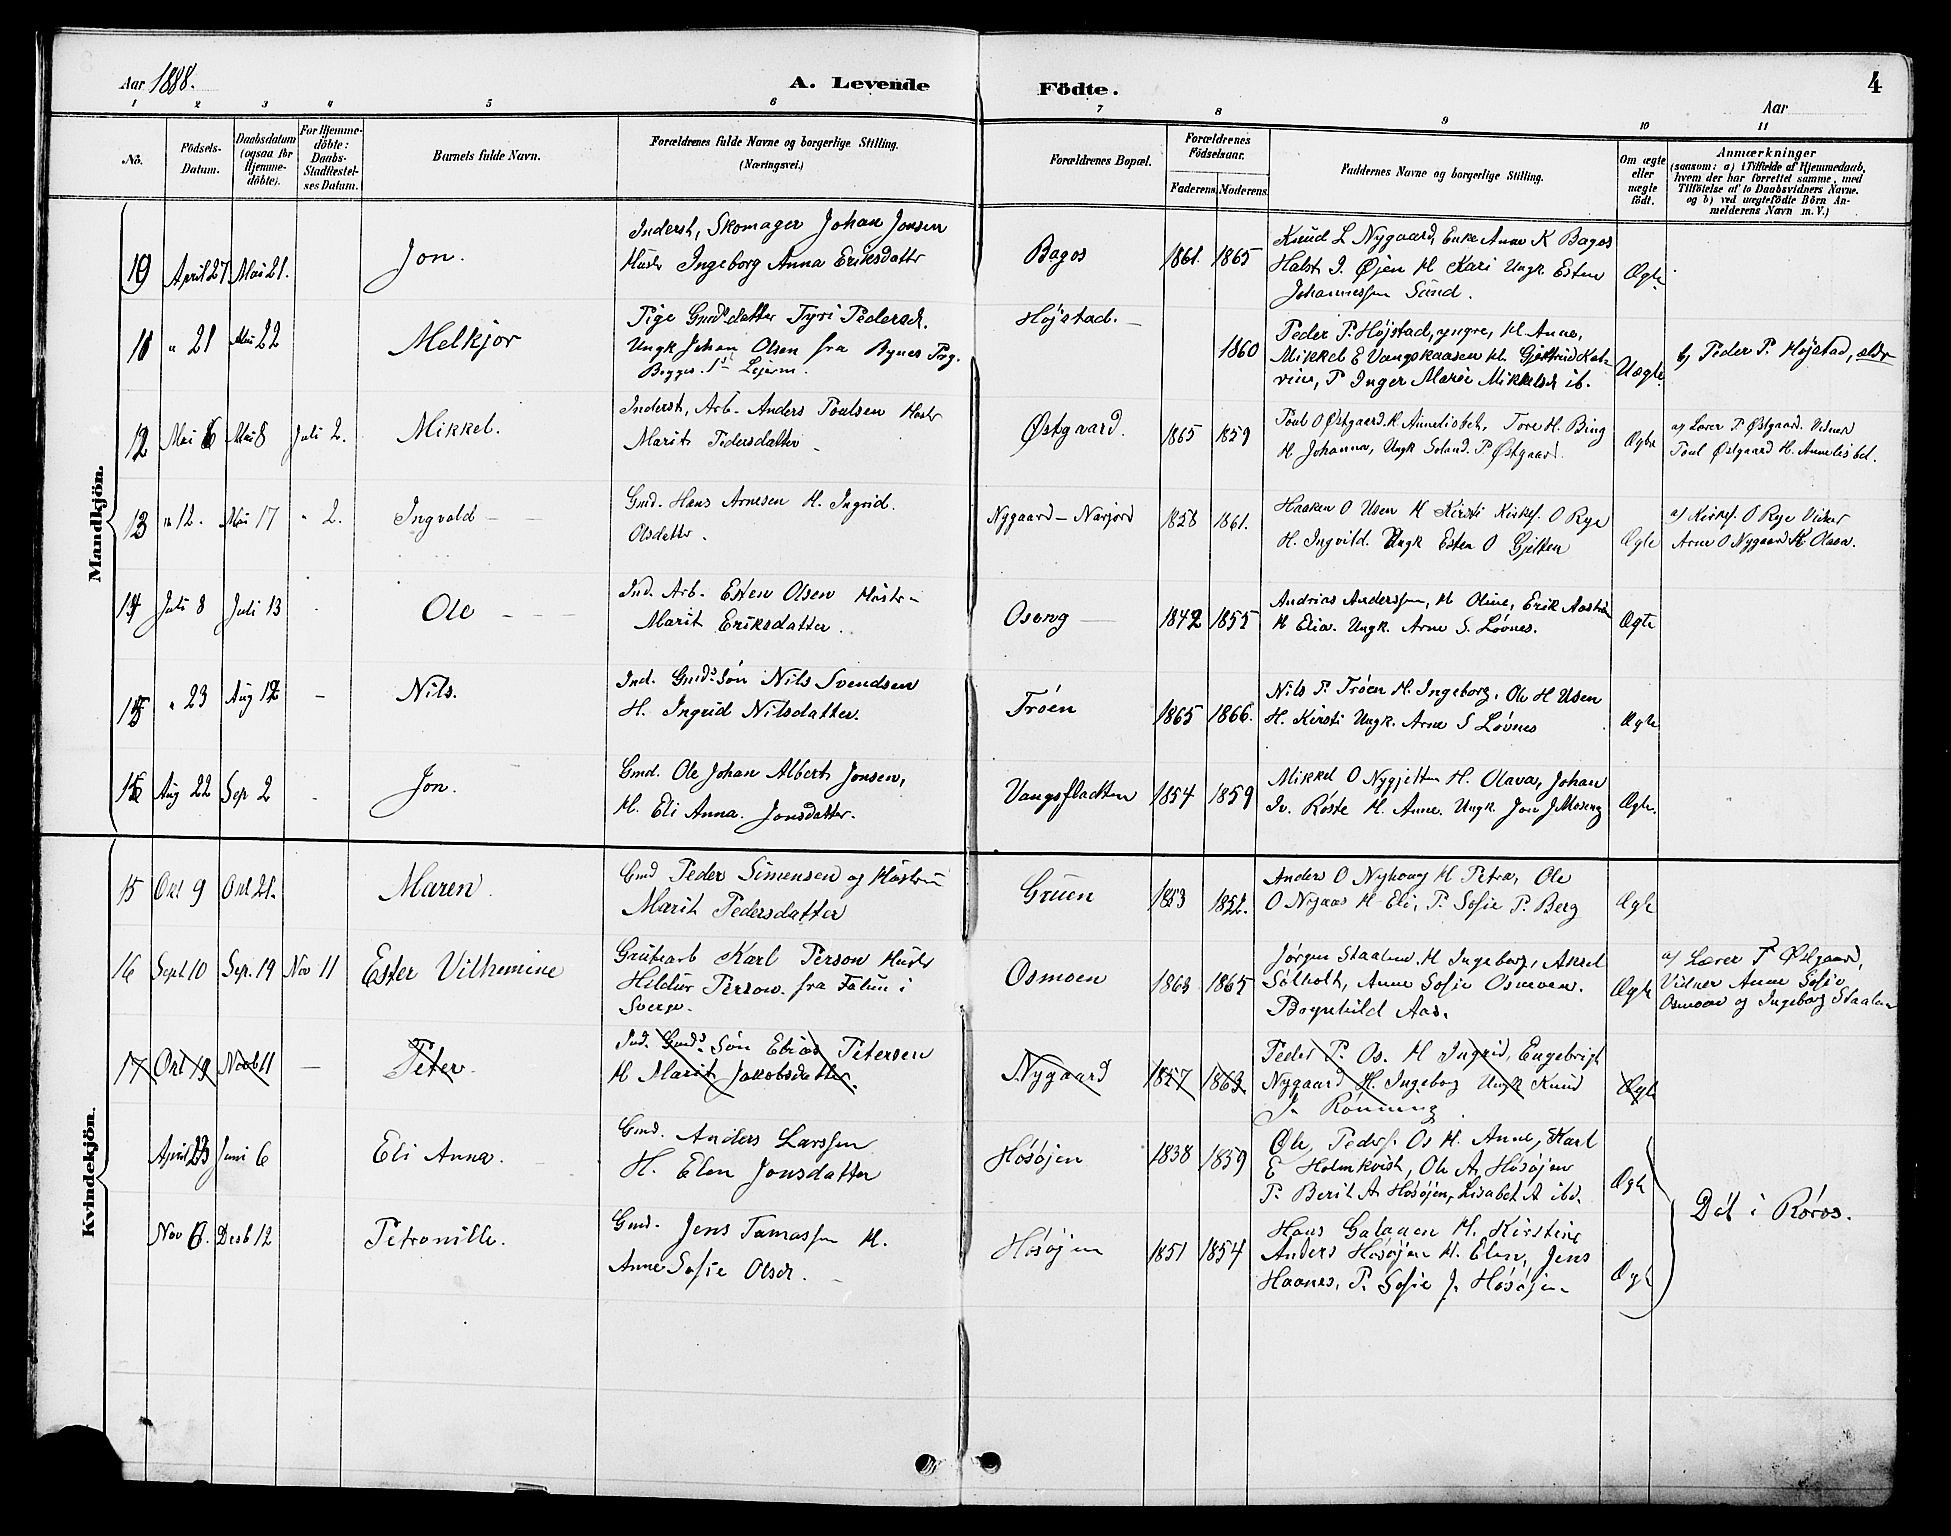 Aar 1888.
A. Levende Födte.
Aar
4
1 2 3 4 5 6 7 8 9 10 11
No.
Födsels-
Datum.
Daabsdatum
(ogsaa for
Hjemme-
döbte).
For Hjemme-
döbte:
Daabs-
Stadfæstel-
ses Datum.
Barnets fulde Navn.
Forældrenes fulde Navne og borgerlige Stilling.
(Næringsvei.)
Forældrenes Bopæl.
Forældrenes
Födselsaar.
Faderens. Moderens.
Faddernes Navne og borgerlige Stilling.
Om ægte
eller
uægte
födt.
Anmærkninger
(saasom: a) i Tilfælde af Hjemmedaab,
hvem der har forrettet samme, med
Tilföielse af to Daabsvidners Navne.
og b) ved uægtefödte Börn An-
melderens Navn m. V.)
Mandkjön.
10 April 27 Mai 21. Jon.
Inderst, Skomager Johan Jonsen
Hustr Ingeborg Anna Eriksdatter
Bagos 1861. 1865
Knud L Nygaard, Enke Anne K Bagos
Halst I. Øjen H Kari Ungk Esten
Johannessen Sund.
Ægte
11 " 21 Mai 22 Melkjor
Pige Gmds datter Tyri Pedersd.
Ungk Johan Olsen fra Bynes Prg.
Begges 1st Lejerm.
Højstad. 1860
Peder P. Højstad, yngre, H. Anne,
Mikkel E Vangskaasen H. Gjertrud Kat-
rine, P Inger Marie Mikkelsd ib.
Uægte
b) Peder P. Højstad, ældr
12 Mai 6 Mai 8 Juli 2. Mikkel.
Inderst, Arb. Anders Poulsen Hustr
Marit Pedersdatter
Østgaard. 1865 1859
Poul O Østgaard H. Annelisbet, Tore H. Bing
H. Johanna, Ungk P. Østgaard.
Ægte
a) Lærer P Østgaard. Vidner
Poul Østgaard H. Annelisbet.
13 " 12. Mai 17 " 2. Ingvald
Gmd. Hans Arnesen H. Ingrid.
Olsdatter.
Nygaard - Narjord 1828 1861.
Haaken O Usen H Kirsti Kirkes. O Rye
H. Ingvild. Ungk Esten O Gjelten
Ægte
a) Kirkes. O Rye Vidner
Arne O Nygaard H Olava.
14 Juli 8 Juli 13 Ole
Ind. Arb. Esten Olsen Hustr
Marit Eriksdatter.
Oseng 1842 1855
Andrias Anderssen, H Oline, Erik
H Elia. Ungk. Arne S. Løvnes.
Ægte
15 " 23 Aug 12 Nils.
Ind. Gmds Søn Nils Svendsen
H. Ingrid Nilsdatter.
Trøen 1865 1866.
Nils P. Trøen H. Ingeborg, Ole H Usen
H. Kirsti Ungk. Arne S Løvnes
Ægte
16 Aug 22 Sep 2 Jon.
Gmd. Ole Johan Albert Jonsen,
H. Eli Anna. Jonsdatter.
Vangsfladten 1854 1859
Mikkel O Nygjelten H. Olava, Johan
Iv. Røste H. Anne. Ungk Jon J Moseng
Ægte.
Kvindekjön.
15 Okt 9 Okt 21. Maren.
Gmd Peder Simensen og Hustru
Marit Pedersdatter
Gruen 1853 1852.
Anders O Nyhoug H Petra, Ole
O Nyaas H Eli, P. Sofie P. Berg
Ægte
16 Sept 10 Sep. 19 Nov 11 Ester Vilhemine
Grubearb Karl Person Hustr
Hildur Person. fra Falun i
Sverge.
Osmoen 1863 1865
Jørgen Staalen H Ingeborg, Aksel
Sølholt, Anne Sofie Osmoen.
Bognhild Aas.
Ægte
a) Lærer P Østgaard,
Vidner Anne Sofie
Osmoen og Ingeborg Staalen
17 Okt 19 Novb 11 Peter
Ind. Gmds Søn Elias Petersen
H Marit Jakobsdatter.
Nygaard 1857 1863
Peder P. Os. H Ingrid, Engebrigt
Nygaard H. Ingeborg Ungk Knud
J. Rønning
Ægte
April 23 Juni 6 Eli Anna.
Gmd. Anders Larssen
H. Elen Jonsdatter
Høsøjen 1838 1859
Ole, Peders. Os H. Anne, Karl
E Holmkvist, Ole A. Høsøjen
P. Berit A Høsøjen, Lisabet A ibd.
Ægte
Nov 6. Desb 12 Petronille.
Gmd. Jens Tamassen H.
Anne Sofie Olsdr.
Høsøjen 1851 1854
Hans Galaaen H. Kirstine
Anders Høsøjen H. Elen, Jens
Haanes, P. Sofie J. Høsøjen
Ægte
Døbt i Røros.